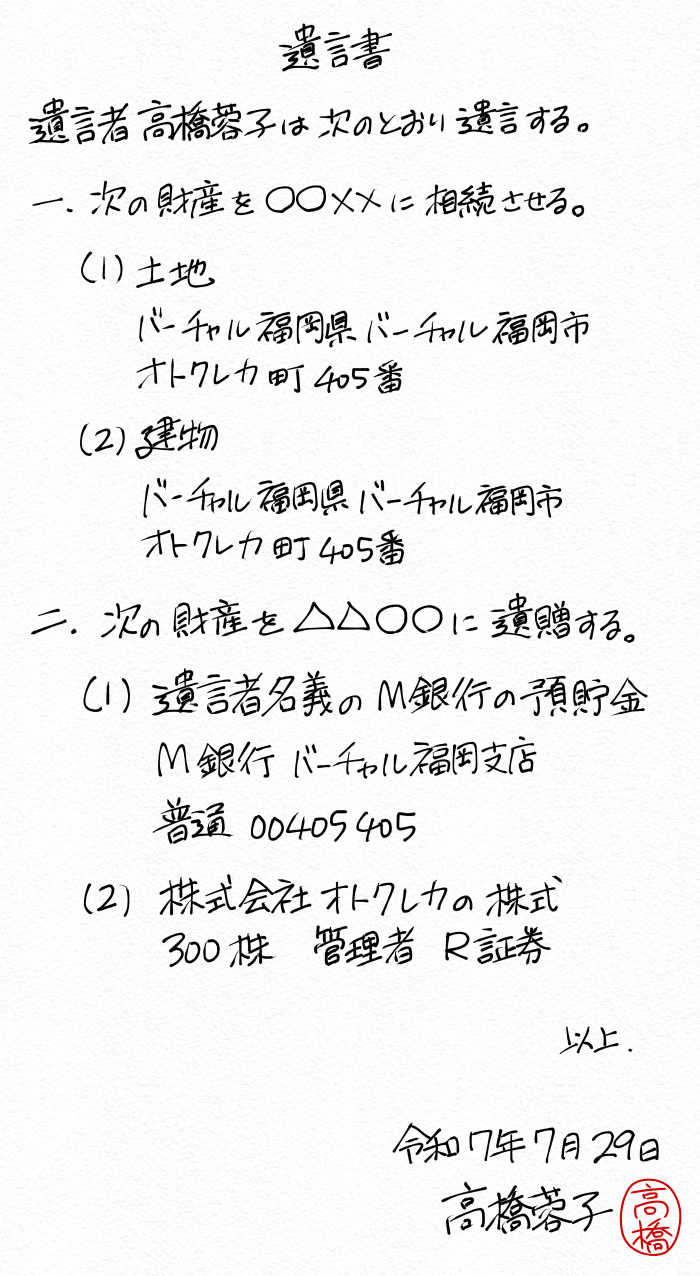 遺言書
遺言者 高橋蓉子は 次のとおり 遺言する。
一. 次の財産を〇〇××に 相続させる。
(1) 土地
バーチャル福岡県 バーチャル福岡市
オトクレカ町 405番
(2) 建物
バーチャル福岡県 バーチャル福岡市
オトクレカ町 405番
二. 次の財産を △△〇〇に 遺贈する。
(1) 遺言者名義の M銀行の預貯金
M銀行 バーチャル福岡支店
普通 00405405
(2) 株式会社オトクレカの株式
300株 管理者 R証券
以上.
令和7年7月29日
高橋蓉子 高橋